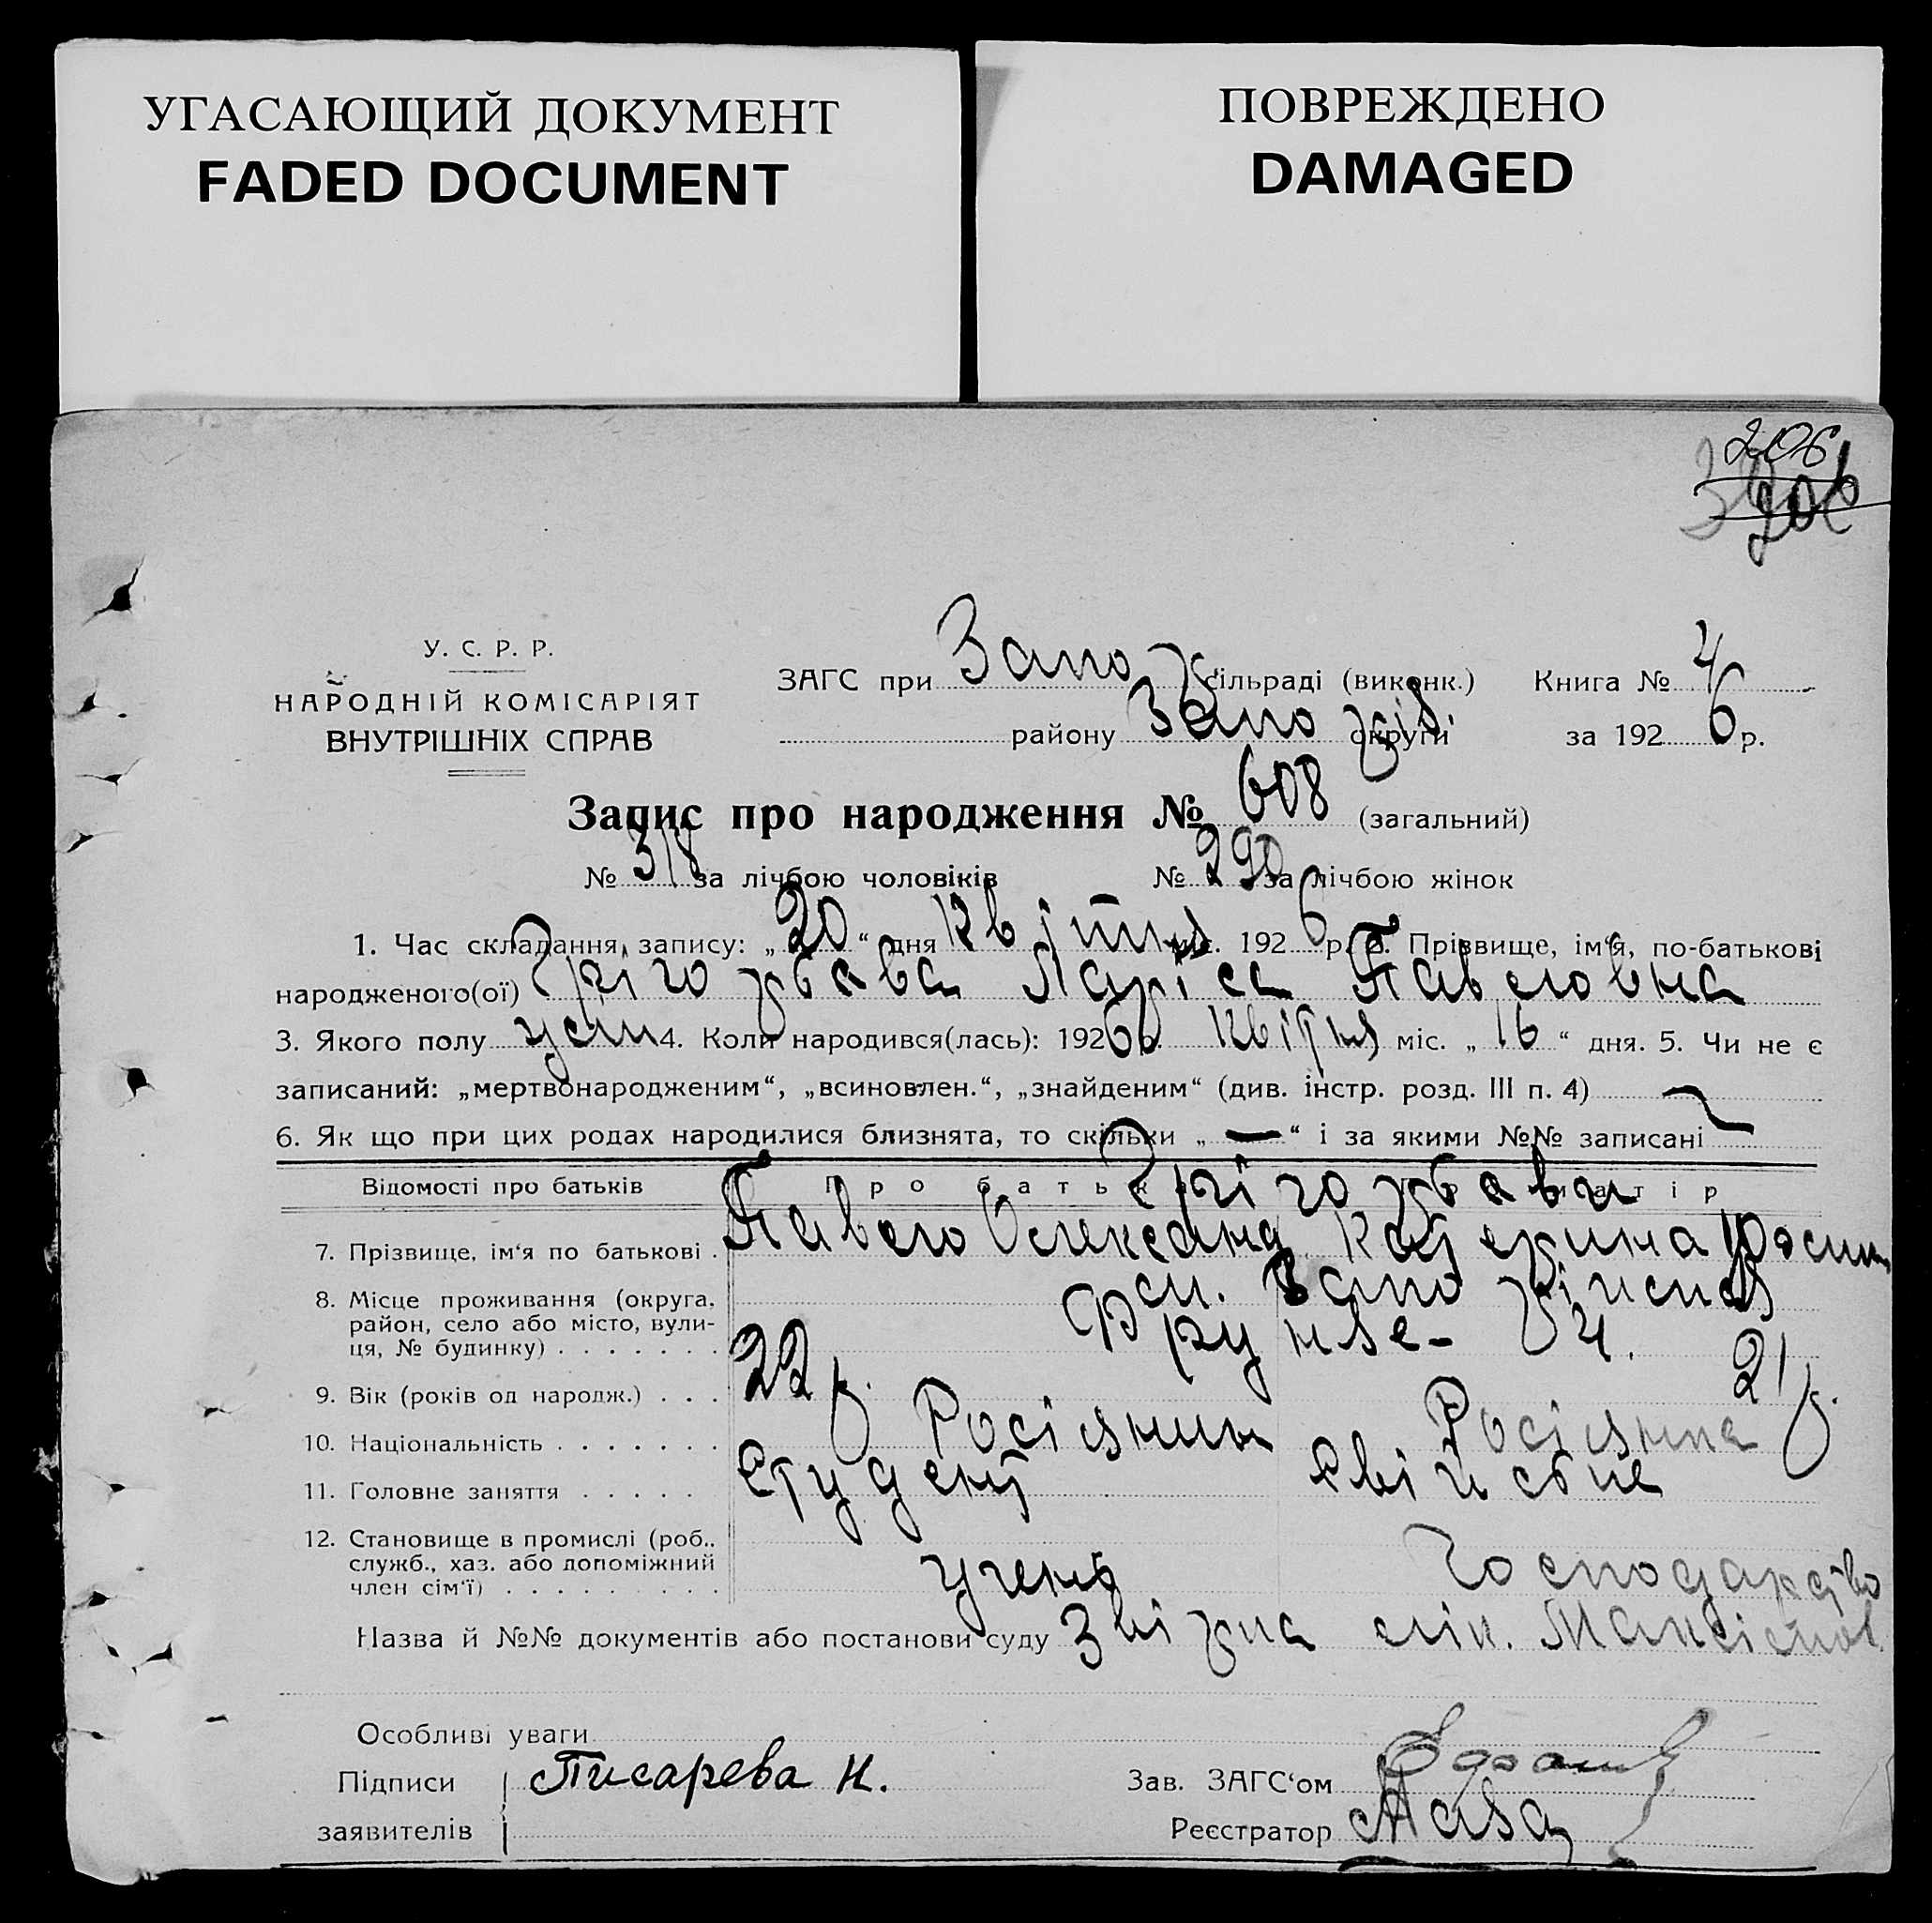 УГАСАЮЩИЙ ДОКУМЕНТ
FADED DOCUMENT
ПОВРЕЖДЕНО
DAMAGED
206
206
У. С. Р. Р.
НАРОДНІЙ КОМІСАРІЯТ
ВНУТРІШНІХ СПРАВ
ЗАГС при Запо сільраді (виконк.) Книга № 4
району Запоріз. округи за 192 6 р.
Запис про народження № 608 (загальний)
№ 318 за лічбою чоловіків № 290 за лічбою жінок
1. Час складання запису: „ 20 “ дня Квітня міс. 192 6 р. 2. Прізвище, ім‘я, по-батькові
народженого(ої) Лариса Павеловна
3. Якого полу жін 4. Коли народився(лась): 192 6 р. Квітня міс. „ 16 “ дня. 5. Чи не є
записаний: „мертвонародженим“, „всиновлен.“, „знайденим“ (див. інстр. розд. III п. 4)
6. Як що при цих родах народилися близнята, то скільки „ — “ і за якими №№ записані
Відомості про батьків Про батька матір
7. Прізвище, ім‘я по батькові . Павело Олександ Катерина
8. Місце проживання (округа, район, село або місто, вули- ця, № будинку) . . . . . . . Фрунзе-
9. Вік (років од народж.) . . . 22 р. 21 р.
10. Національність . . . . . . . Росіянин Росіянка
11. Головне заняття . . . . . Студент
12. Становище в промислі (роб., служб., хаз. або допоміжний член сім‘ї) . . . . . . . . . учень Господарство
Назва й №№ документів або постанови суду лік.
Особливі уваги
Підписи Писарева Н. Зав. ЗАГС‘ом
заявителів Реєстратор